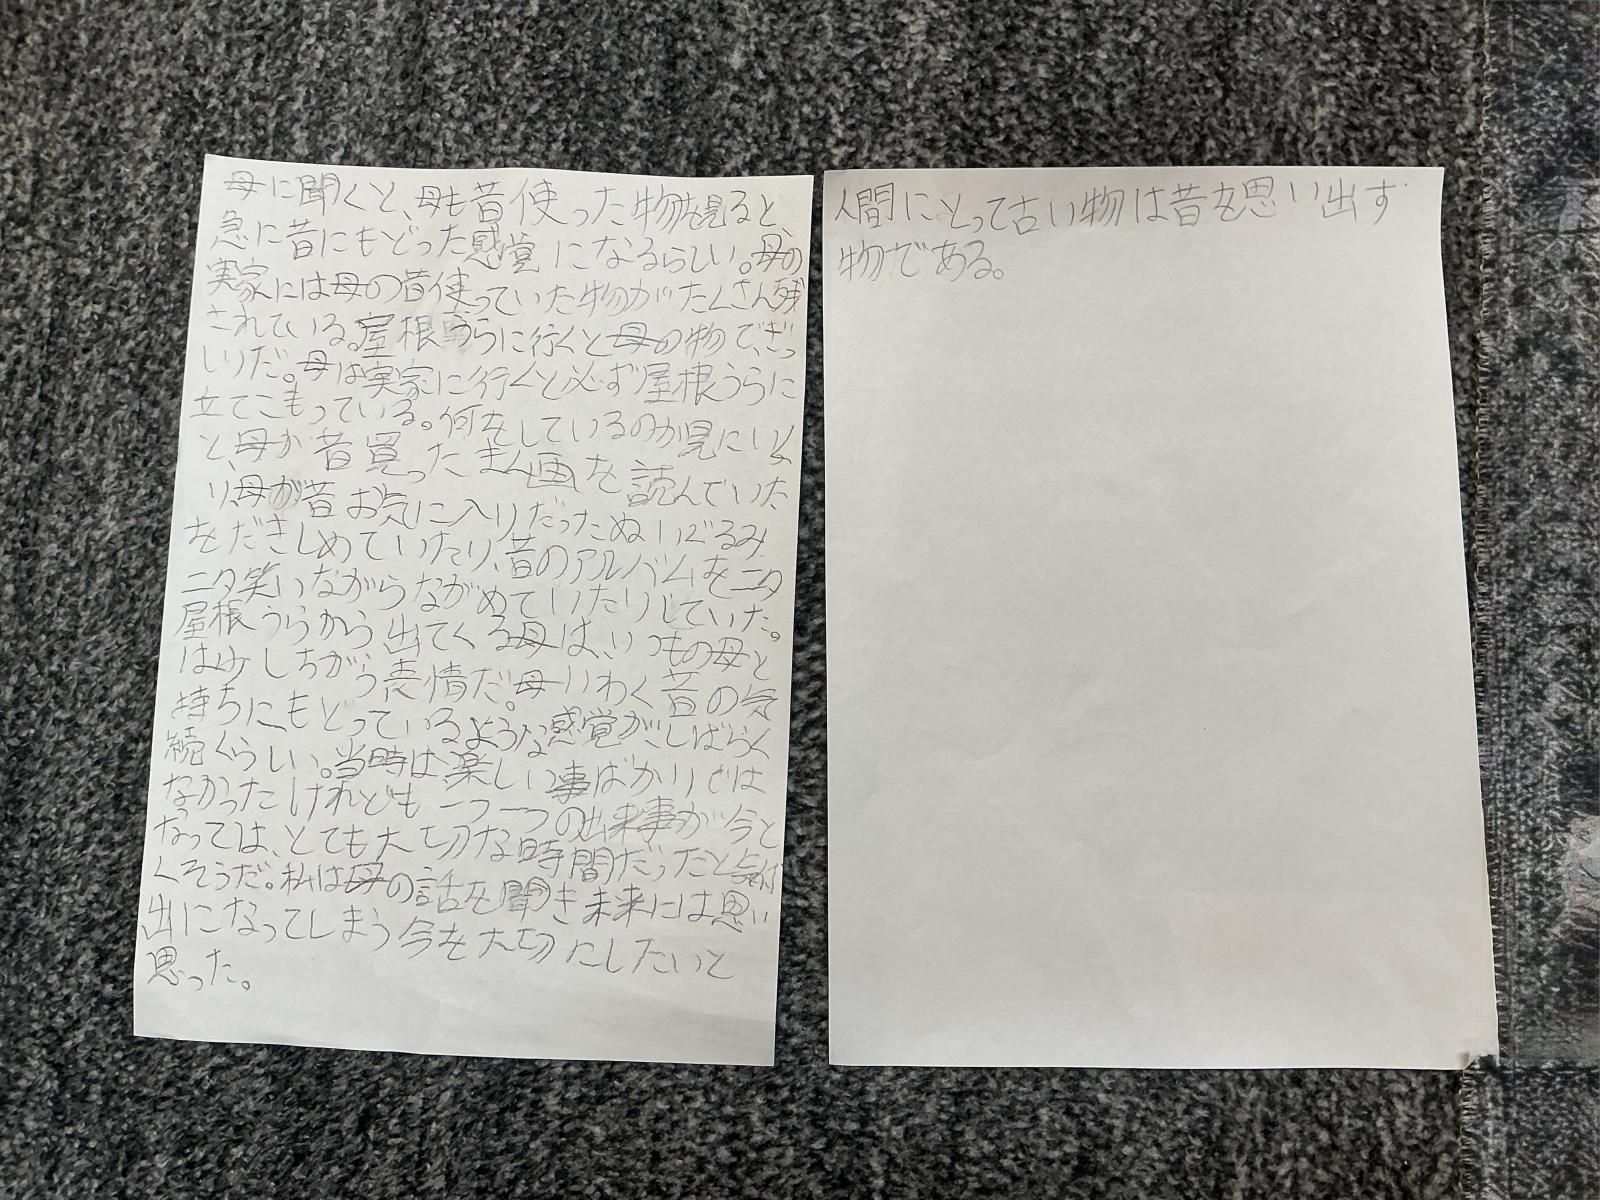 母に聞くと、母も昔使った物を見ると、
急に昔にもどった感覚になるらしい。母の
実家には母の昔使っていた物がたくさん残
されている。屋根うらに行くと母の物で、ぎっ
しりだ。母は実家に行くと必ず屋根うらに
立てこもっている。何をしているのか見にいく
と、母が昔買ったまん画を読んでいた
り、母が昔お気に入りだったぬいぐるみ
をだきしめていたり、昔のアルバムをニタ
ニタ笑いながらながめていたりしていた。
屋根うらから出てくる母は、いつもの母と
は少しちがう表情だ。母いわく昔の気
持ちにもどっているような感覚が、しばらく
続くらしい。当時は、楽しい事ばかりでは
なかったけれども一つ一つの出来事が今と
なっては、とても大切な時間だったと気付
くそうだ。私は母の話を聞き未来には思い
出になってしまう今を大切にしたいと
思った。
人間にとって古い物は昔を思い出す
物である。